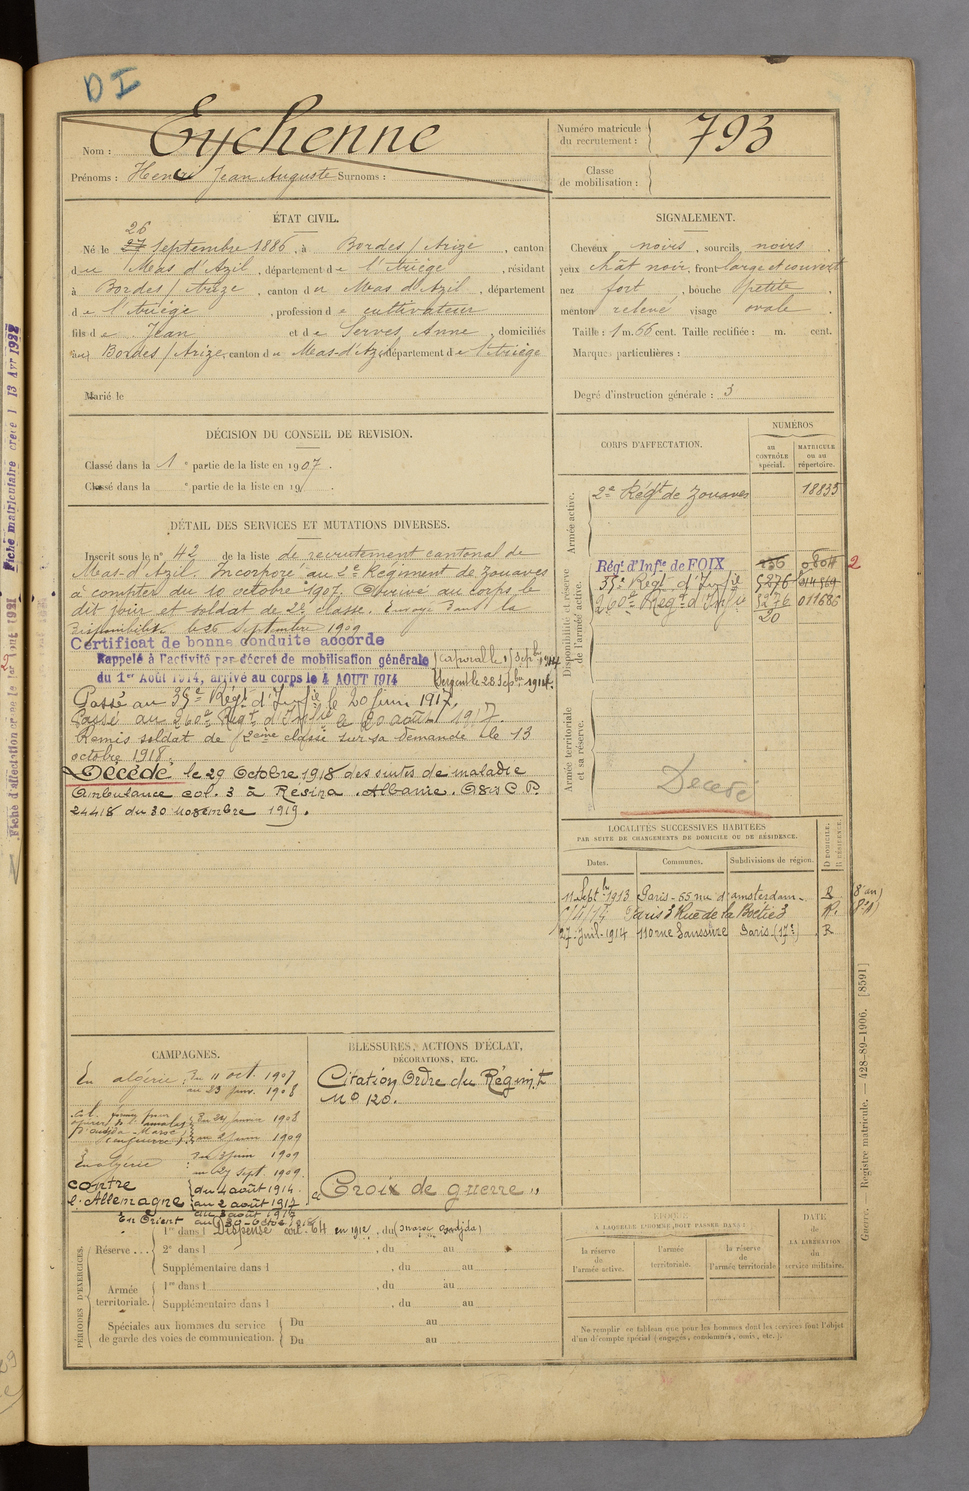 DI
Nom : Eychenne
Prénoms : Henri Jean Auguste Surnoms :
Numéro matricule du recrutement : 793
Classe de mobilisation :
ÉTAT CIVIL.
26
Né le 27 Septembre 1886, à Bordes / Arize, canton
du Mas d'Azil, département de l'Ariège, résidant
à Bordes / Arize, canton du Mas d'Azil, département
de l'Ariège, profession de cultivateur
fils de Jean et de Serves Anne, domiciliés
à Bordes / Arize, canton du Mas-d'Azil, département de l'Ariège
Marié le
SIGNALEMENT.
Cheveux noirs, sourcils noirs.
yeux chât noir, front large et couvert
nez fort, bouche petite,
menton relevé visage ovale.
Taille : 1 m. 66 cent. Taille rectifiée : m. cent.
Marques particulières :
Degré d'instruction générale : 3
DÉCISION DU CONSEIL DE REVISION.
Classé dans la 1e partie de la liste en 1907.
Classé dans la e partie de la liste en 19 .
DÉTAIL DES SERVICES ET MUTATIONS DIVERSES.
Inscrit sous le n° 42 de la liste de recrutement cantonal de
Mas-d'Azil. Incorporé au 2e Régiment de Zouaves
à compter du 10 octobre 1907. Arrivé au corps le
dit jour et soldat de 2e classe. Envoyé dans la
disponibilité le 26 Septembre 1909
Certificat de bonne conduite accordé
Rappelé à l'activité par décret de mobilisation générale
du 1er Août 1914, arrivé au corps le 4 AOUT 1914
Caporal le 1 Septbre 1914
Sergent le 28 Septbre 1914.
Passé au 35e Régt d'Infie le 20 juin 1917.
Passé au 260e Régt d'Infie le 20 août 1917.
Remis soldat de 2ème classe sur sa demande le 13
octobre 1918.
Décédé le 29 Octobre 1918 des suites de maladie
Ambulance col. 3 à Resna. Albanie. Avis C. P.
24418 du 30 Novembre 1919.
CORPS D'AFFECTATION.
NUMÉROS
au CONTRÔLE spécial.
MATRICULE ou au répertoire.
Armée active.
2e Régt de Zouaves 18835
Disponibilité et réserve de l'armée active.
Régt d'Infie de FOIX 2
35e Régt d'Infie 5276
260e Régt d'Infie 5276 011686
20
Armée territoriale et sa réserve.
Décédé
LOCALITÉS SUCCESSIVES HABITÉES
PAR SUITE DE CHANGEMENTS DE DOMICILE OU DE RÉSIDENCE.
Dates. Communes. Subdivisions de région. D DOMICILE. R RÉSIDENCE.
11 Septbre 1913 Paris - 55 rue d'amsterdam - R (8e arr)
Paris 3 Rue de la Boëtie 3 R.
27 Juil. 1914 110 rue Saussure Paris (17e) R
CAMPAGNES.
En algérie, du 11 oct 1907
au 23 janv. 1908
du 24 janvier 1908
au 2 juin 1909
En algérie du 3 juin 1909
au 27 sept. 1909.
contre l'Allemagne du 4 août 1914
au 2 août 1917
En Orient
BLESSURES, ACTIONS D'ÉCLAT,
DÉCORATIONS, ETC.
Citation Ordre du Régimt
No 120.
Croix de guerre"
PÉRIODES D'EXERCICES.
Réserve ... 1re dans l Dispensé art. 64 en 1912, du (maroc Oudjda)
2e dans l , du au
Supplémentaire dans l , du au
Armée territoriale. 1re dans l , du au
Supplémentaire dans l , du au
Spéciales aux hommes du service de garde des voies de communication. Du au
Du au
ÉPOQUE
À LAQUELLE L'HOMME DOIT PASSER DANS :
la réserve de l'armée active.
l'armée territoriale.
la réserve de l'armée territoriale
DATE de LA LIBÉRATION du service militaire.
Ne remplir ce tableau que pour les hommes dont les services font l'objet
d'un décompte spécial (engagés, condamnés, omis, etc.).
Guerre. Registre matricule. — 428-89-1906. [8591]
Fiche matriculaire créée l 13 Avr 1922